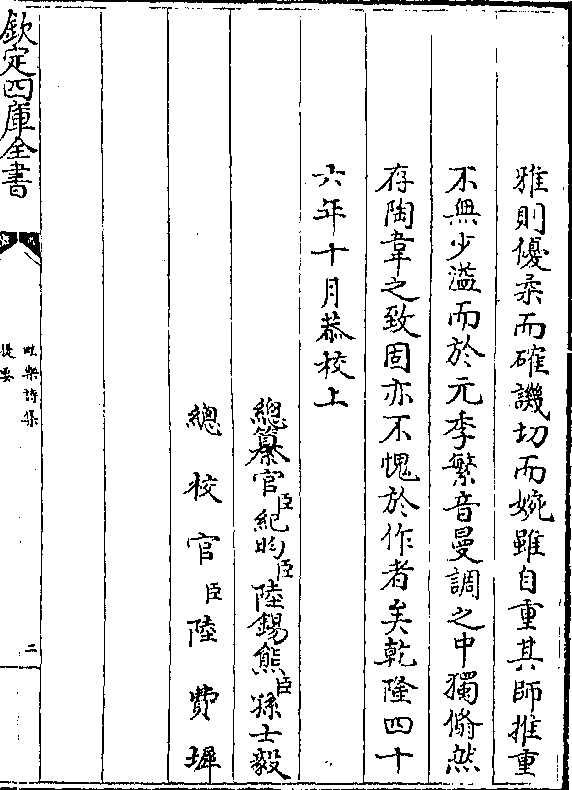 雅則優柔而確譏切而婉雖自重其師推重
不無少溢而於元季繁音曼調之中獨翛然
存陶韋之致固亦不愧於作者矣乾隆四十
六年十月恭校上
總纂官臣紀昀臣陸錫熊臣孫士毅
總校官臣陸費墀
欽定四庫全書
畦樂詩集
提要
二